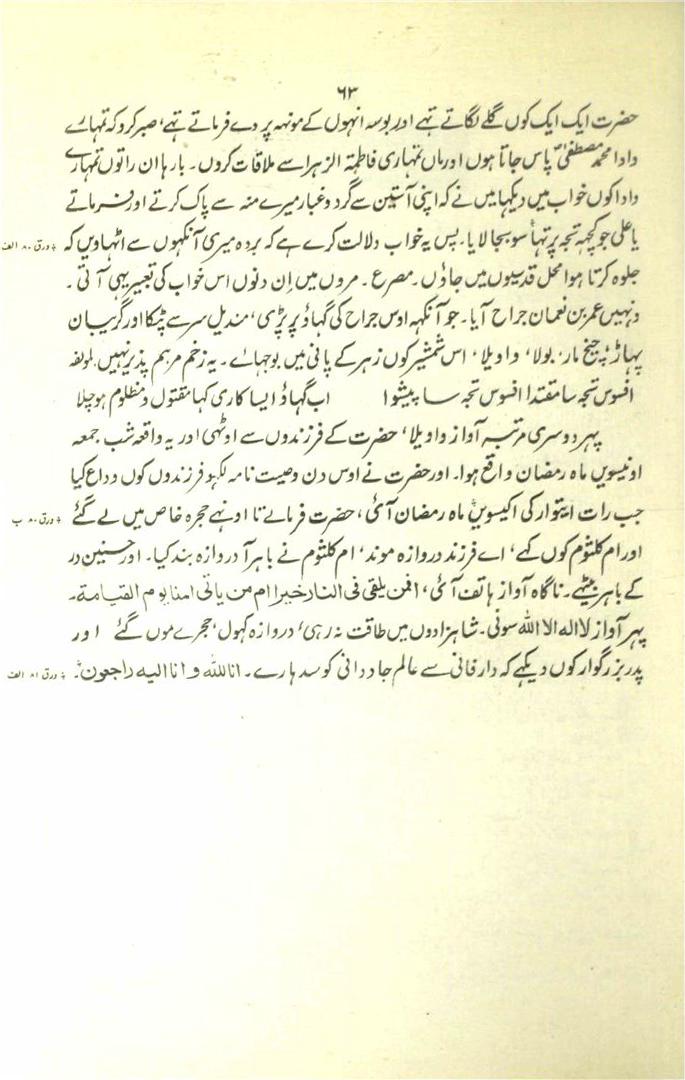 ۶۳
حضرت ایک ایک کوں گلے لگاتے تہے اور بوسہ انہوں کے مونہہ پر دے فرماتے تہے، صبر کرو کہ تمہارے
دادا محمد مصطفیٰؐ پاس جاتا ہوں اور ماں تمہاری فاطمۃ الزہرا سے ملاقات کروں۔ بارہا ان راتوں تمہارے
دادا کوں خواب میں دیکہا میں نے کہ اپنی آستین سے گرد و غبار میرے منہ سے پاک کرتے اور فرماتے
یا علی جو کچہہ تجہ پر تہا سو بجا لایا۔ پس یہ خواب دلالت کرے ہے کہ بردہ میری آنکہوں سے اٹہاویں کہ
؞ ورق ۸۰ الف
جلوہ کرتا ہوا محل قدسیوں میں جاؤں۔ مصرع۔ مروں میں اِن دنوں اس خواب کی تعبیر یہی آتی۔
ونہیں عمر بن نعمان جراح آیا۔ جو آنکہہ اوس جراح کی گہاؤ پر پڑی، مندیل سر سے پٹکا اور گریبان
پہاڑ، چیخ مار، بولا، واویلا، اس شمشیر کوں زہر کے پانی میں بوجہاے۔ یہ زخم مرہم پذیر نہیں۔ لمولفہ
افسوس تجہ سا مقتدا افسوس تجہ سا پیشوا اب گہاؤ ایسا کاری کہا مقتول و مظلوم ہو چلا
پہر دوسری مرتبہ آواز واویلا، حضرت کے فرزندوں سے اوٹہی اور یہ واقعہ شب جمعہ
اونیسویں ماہ رمضان واقع ہوا۔ اور حضرت نے اوس دن وصیت نامہ لکہو فرزندوں کوں وداع کیا
جب رات ایتوار کی اکیسویںؔ ماہ رمضان آئی، حضرت فرمائے تا اونہے حجرہ خاص میں لے گئے
؞ ورق ۸۰ ب
اور ام کلثوم کوں کہے، اے فرزند دروازہ موند، ام کلثوم نے باہر آ دروازہ بند کیا۔ اور حسنین در
کے باہر بیٹہے۔ ناگاہ آواز ہاتف آئی، افمن یلقی فی النار خیرا ام من یاتی امنا یوم القیامۃ۔
پہر آواز لا الہ الا اللہ سونی۔ شاہزادوں میں طاقت نہ رہی، دروازہ کہول، حجرے موں گئے اور
پدر بزرگوار کوں دیکہے کہ دار فانی سے عالم جاددانی کو سدہارے۔ انا للہ و انا الیہ راجعون۔
؞ ورق ۸۱ الف